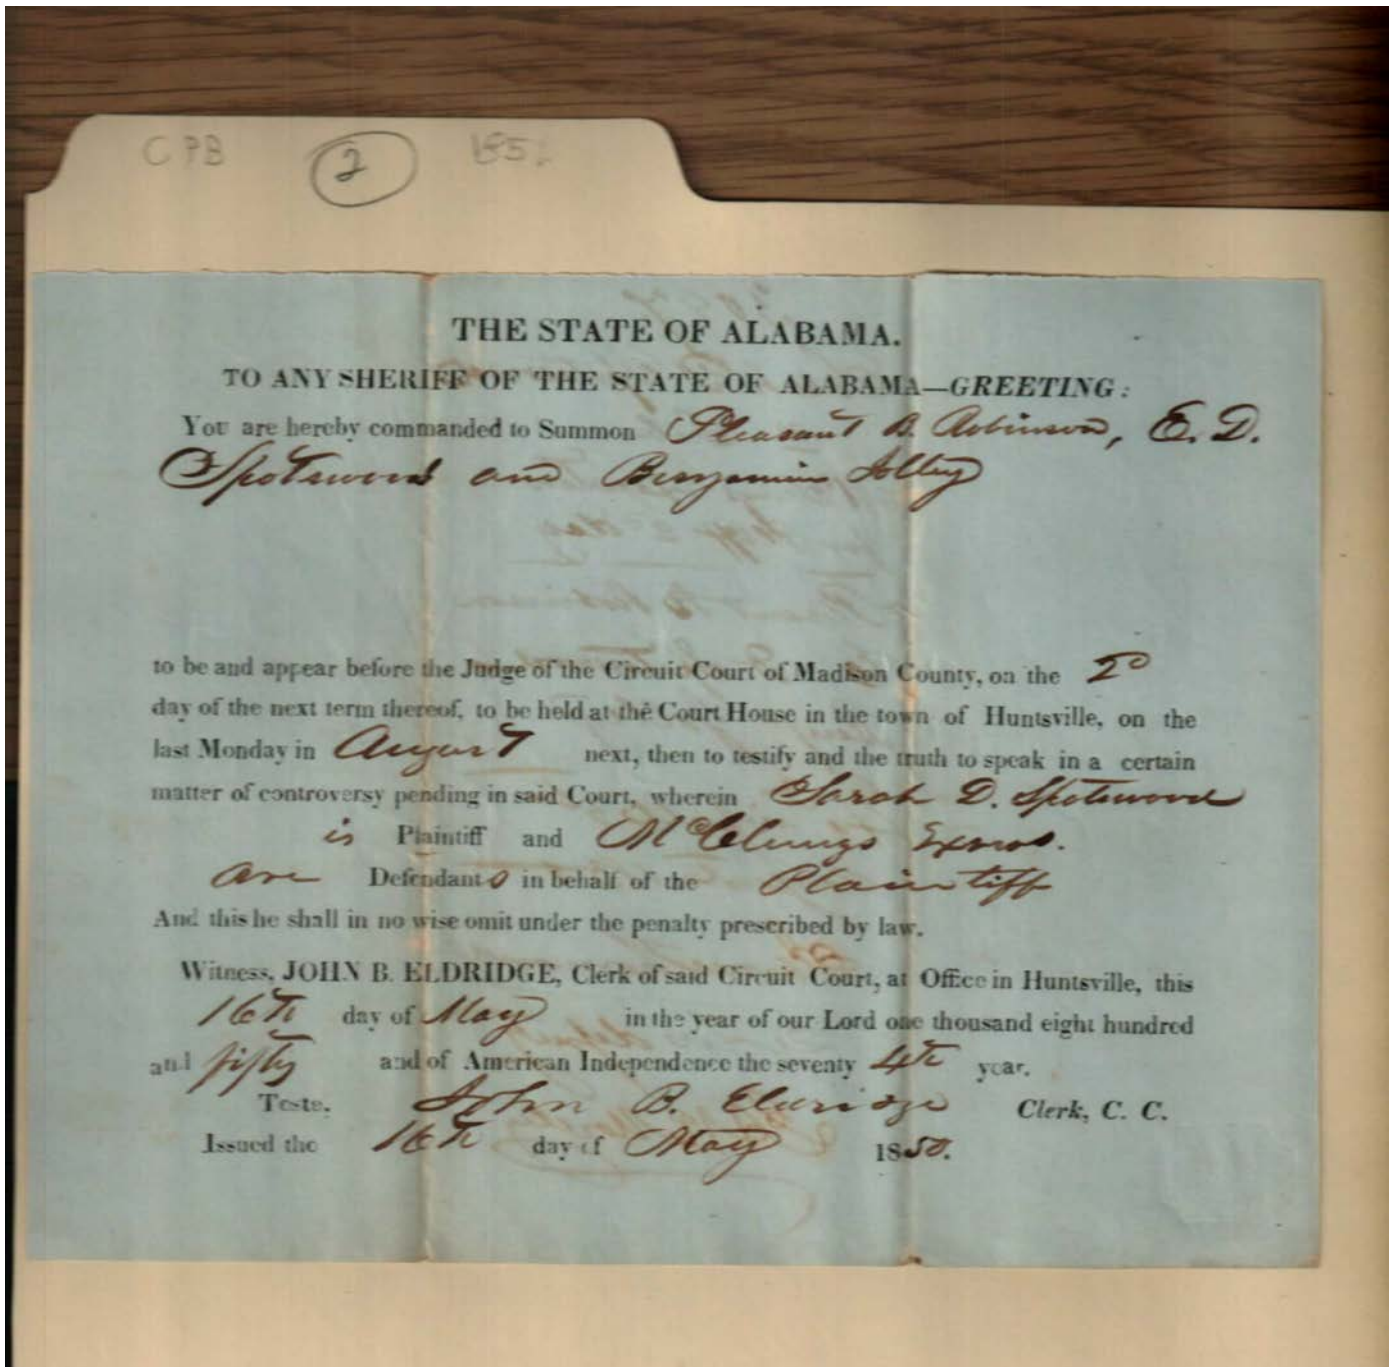 CPB 2 185
THE STATE OF ALABAMA.
TO ANY SHERIFF OF THE STATE OF ALABAMA—GREETING:
You are hereby commanded to Summon Pleasant B. Robinson, E. D.
Spotswood and Benjamin Jolley
to be and appear before the Judge of the Circuit Court of Madison County, on the 2d
day of the next term thereof, to be held at the Court House in the town of Huntsville, on the
last Monday in August next, then to testify and the truth to speak in a certain
matter of controversy pending in said Court, wherein Sarah D. Spotswood
is Plaintiff and McClungs Exors.
are Defendants in behalf of the Plaintiff
And this he shall in no wise omit under the penalty prescribed by law.
Witness, JOHN B. ELDRIDGE, Clerk of said Circuit Court, at Office in Huntsville, this
16th day of May in the year of our Lord one thousand eight hundred
and fifty and of American Independence the seventy 4th year.
Teste. John B. Eldridge Clerk, C. C.
Issued the 16th day of May 1850.